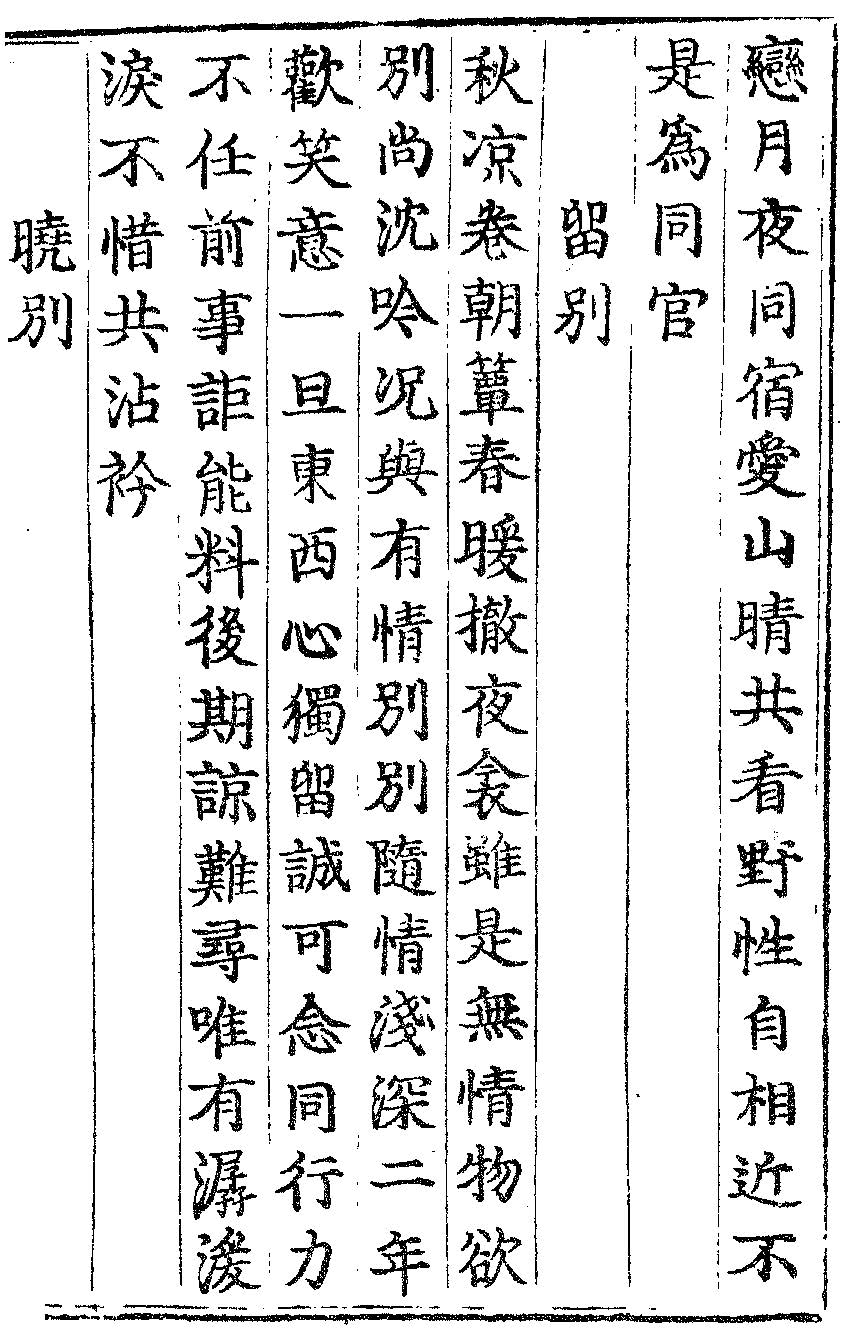 戀月夜同宿愛山晴共看野性自相近不
是爲同官
留别
秋凉卷朝簟春暖撤夜衾雖是無情物欲
别尚沈吟况與有情别别隨情淺深二年
歡笑意一旦東西心獨留誠可念同行力
不任前事詎能料後期諒難尋唯有潺湲
淚不惜共沾衿
曉别